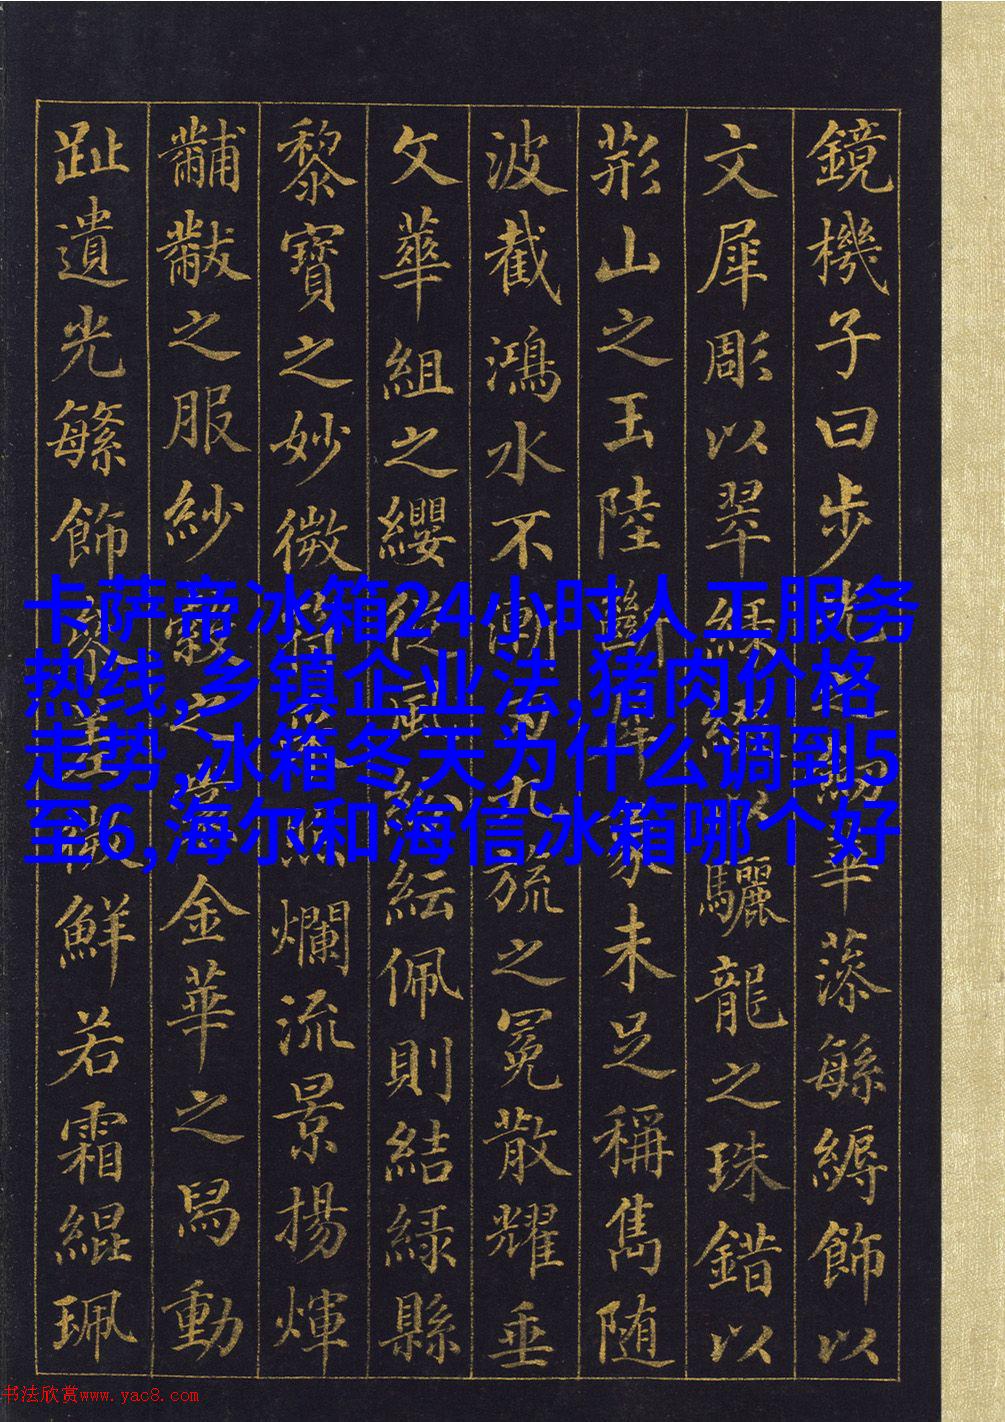 鏡機子曰步光之劒華藻緐縟飾以
文犀彫以翠綠綴以驪龍之珠錯以
荊山之玉陸斷犀象未足稱雋随
波截鴻水不漸刃九旒之冕散耀垂
文華組之纓從風紛紜佩則結緑縣
黎寶之妙微符采照爛流景揚煇
黼黻之服紗縠之裳金華之舄動
趾遺光緐飾參差微鮮若霜緄珮
卡萨帝冰箱24小时人工服务
热线,乡镇企业法,猪肉价格
走势,冰箱冬天为什么调到5
至6,海尔和海信冰箱哪个好
书法欣赏www.yac8.com